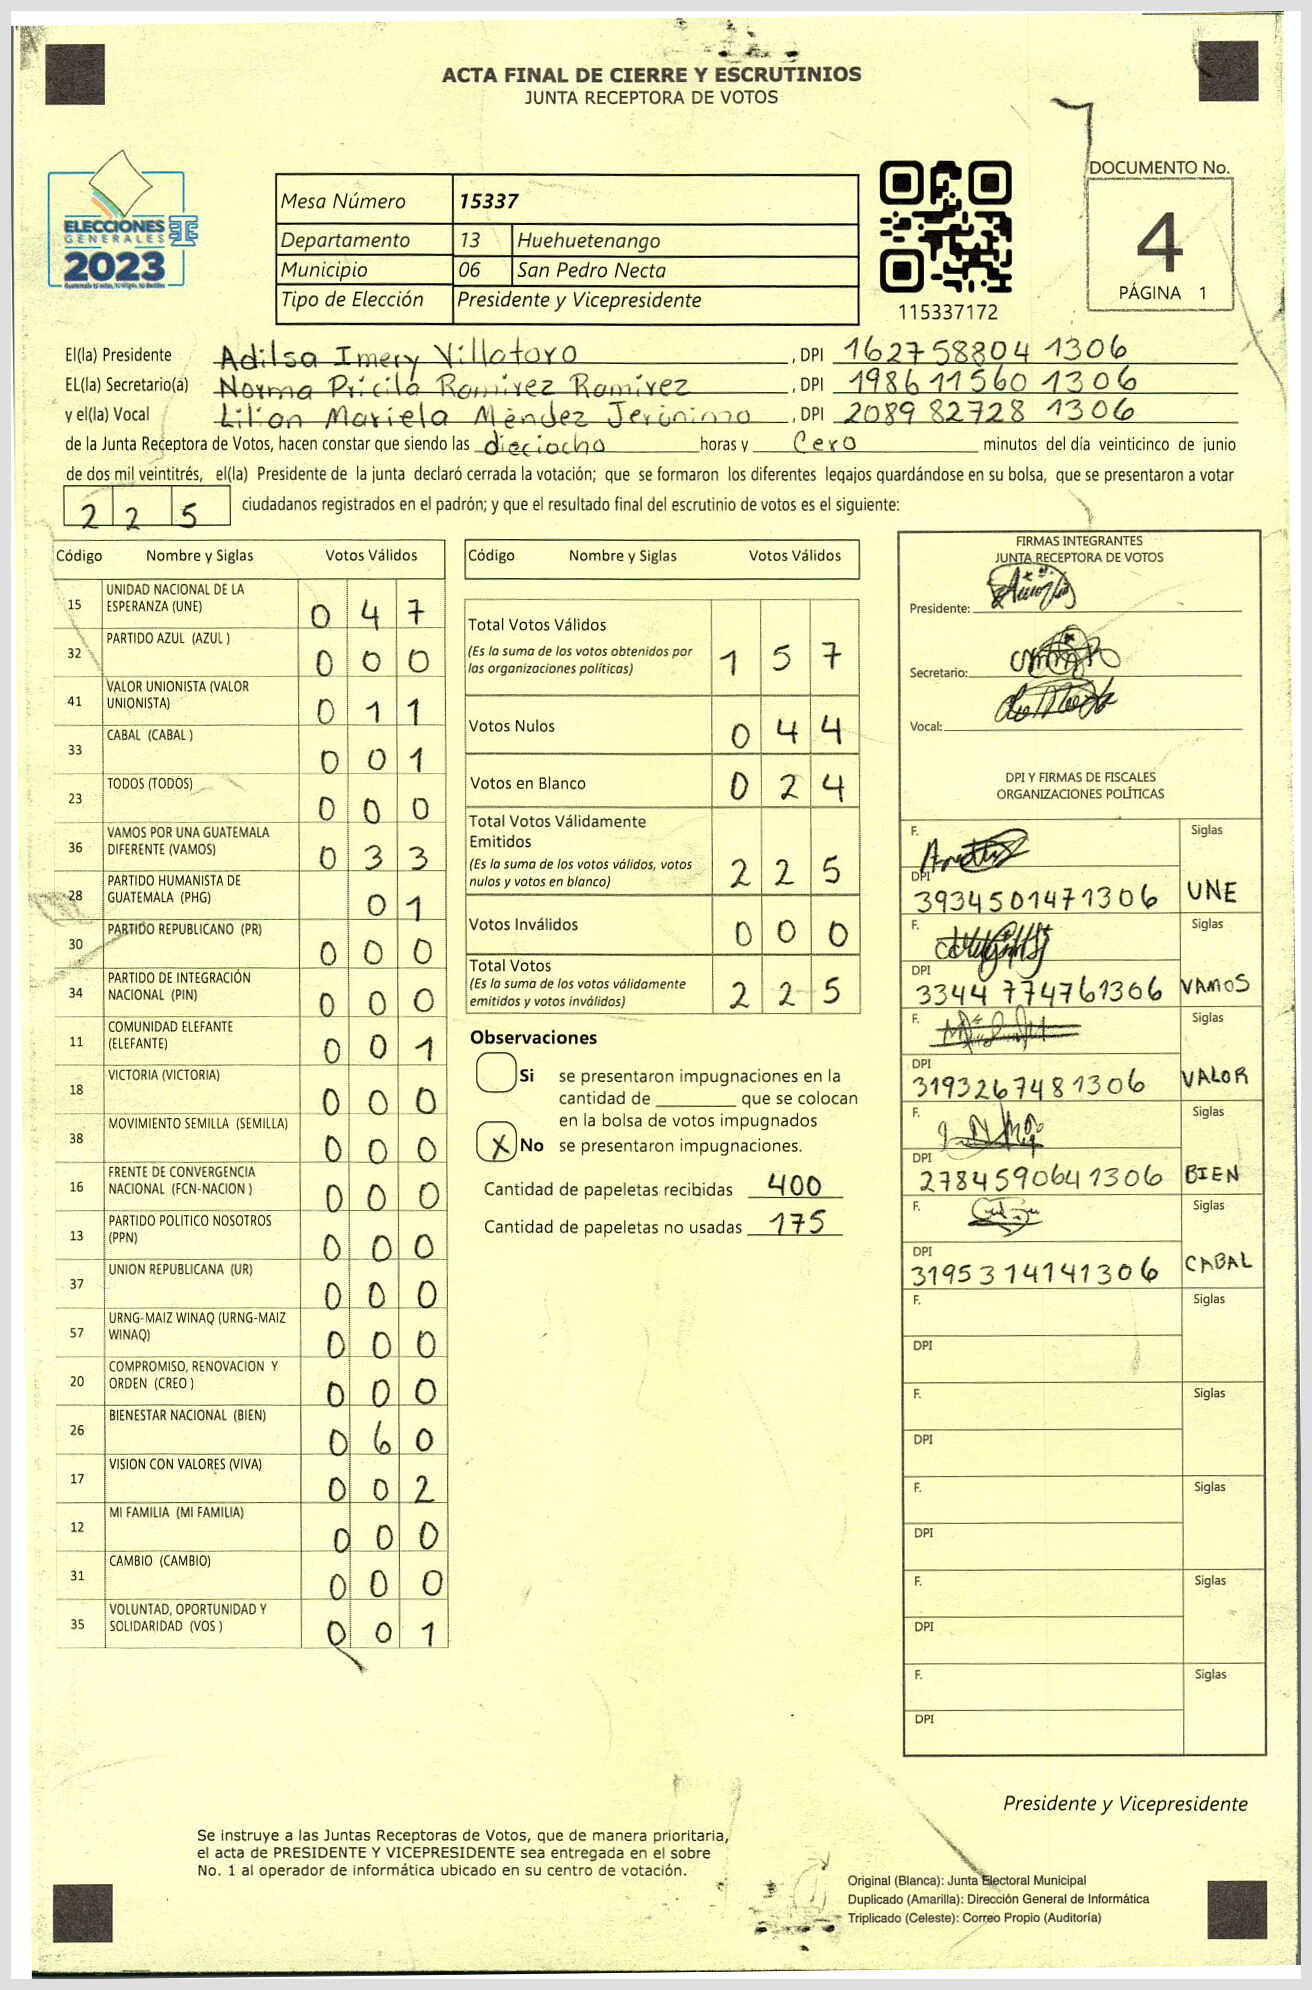 ACTA FINAL DE CIERRE Y ESCRUTINIOS
JUNTA RECEPTORA DE VOTOS
ELECCIONES
GENERALES
2023
Mesa Número 15337
Departamento 13 Huehuetenango
Municipio 06 San Pedro Necta
Tipo de Elección Presidente y Vicepresidente
115337172
DOCUMENTO No.
4
PÁGINA 1
El(la) Presidente Adilsa Imery Villatoro, DPI 162758804 1306
EL(la) Secretario(a) Norma Pricila Ramirez Ramirez, DPI 198611560 1306
y el(la) Vocal Lilian Mariela Méndez Jerónimo, DPI 208982728 1306
de la Junta Receptora de Votos, hacen constar que siendo las dieciocho horas y Cero minutos del día veinticinco de junio
de dos mil veintitrés, el(la) Presidente de la junta declaró cerrada la votación; que se formaron los diferentes legajos quardándose en su bolsa, que se presentaron a votar
225 ciudadanos registrados en el padrón; y que el resultado final del escrutinio de votos es el siguiente:
Código Nombre y Siglas Votos Válidos
15 UNIDAD NACIONAL DE LA
ESPERANZA (UNE) 047
32 PARTIDO AZUL (AZUL ) 000
41 VALOR UNIONISTA (VALOR
UNIONISTA) 011
33 CABAL (CABAL ) 001
23 TODOS (TODOS) 000
36 VAMOS POR UNA GUATEMALA
DIFERENTE (VAMOS) 033
28 PARTIDO HUMANISTA DE
GUATEMALA (PHG) 01
30 PARTIDO REPUBLICANO (PR) 000
34 PARTIDO DE INTEGRACIÓN
NACIONAL (PIN) 000
11 COMUNIDAD ELEFANTE
(ELEFANTE) 001
18 VICTORIA (VICTORIA) 000
38 MOVIMIENTO SEMILLA (SEMILLA) 000
16 FRENTE DE CONVERGENCIA
NACIONAL (FCN-NACION ) 000
13 PARTIDO POLITICO NOSOTROS
(PPN) 000
37 UNION REPUBLICANA (UR) 000
57 URNG-MAIZ WINAQ (URNG-MAIZ
WINAQ) 000
20 COMPROMISO, RENOVACION Y
ORDEN (CREO ) 000
26 BIENESTAR NACIONAL (BIEN) 060
17 VISION CON VALORES (VIVA) 002
12 MI FAMILIA (MI FAMILIA) 000
31 CAMBIO (CAMBIO) 000
35 VOLUNTAD, OPORTUNIDAD Y
SOLIDARIDAD (VOS ) 001
Código Nombre y Siglas Votos Válidos
Total Votos Válidos
(Es la suma de los votos obtenidos por
las organizaciones políticas) 157
Votos Nulos 044
Votos en Blanco 024
Total Votos Válidamente
Emitidos
(Es la suma de los votos válidos, votos
nulos y votos en blanco) 225
Votos Inválidos 000
Total Votos
(Es la suma de los votos válidamente
emitidos y votos inválidos) 225
Observaciones
Si se presentaron impugnaciones en la
cantidad de ________ que se colocan
en la bolsa de votos impugnados
X No se presentaron impugnaciones.
Cantidad de papeletas recibidas 400
Cantidad de papeletas no usadas 175
FIRMAS INTEGRANTES
JUNTA RECEPTORA DE VOTOS
Presidente:
Secretario:
Vocal:
DPI Y FIRMAS DE FISCALES
ORGANIZACIONES POLÍTICAS
F. Siglas
DPI
3934501471306 UNE
F. Siglas
DPI
3344 774761306 VAMOS
F. Siglas
DPI
3193267481306 VALOR
F. Siglas
DPI
2784590641306 BIEN
F. Siglas
DPI
3195314141306 CABAL
F. Siglas
DPI
F. Siglas
DPI
F. Siglas
DPI
F. Siglas
DPI
F. Siglas
DPI
Presidente y Vicepresidente
Se instruye a las Juntas Receptoras de Votos, que de manera prioritaria,
el acta de PRESIDENTE Y VICEPRESIDENTE sea entregada en el sobre
No. 1 al operador de informática ubicado en su centro de votación.
Original (Blanca): Junta Electoral Municipal
Duplicado (Amarilla): Dirección General de Informática
Triplicado (Celeste): Correo Propio (Auditoría)